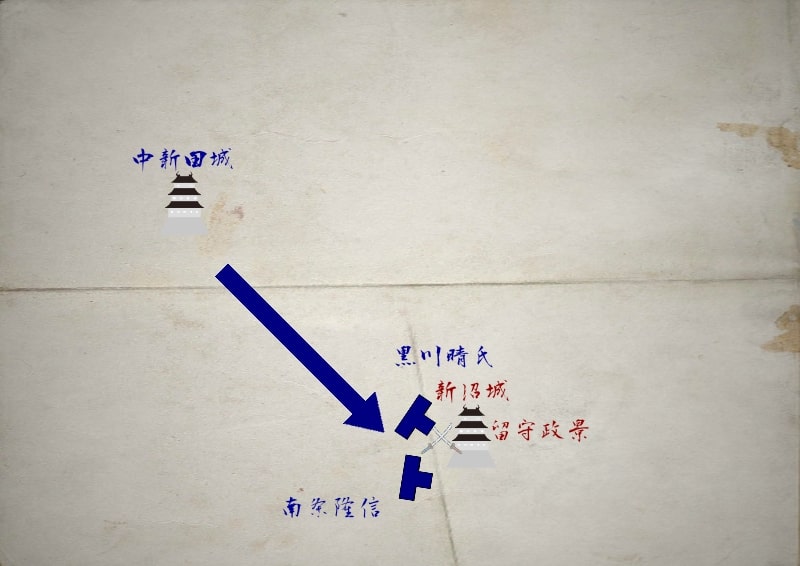 中新田城
黒川晴氏
新沼城
留守政景
南条隆信